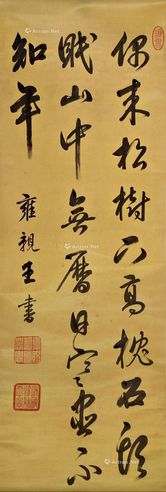 偶来松树下高枕石头
眠山中无历日寒尽不
知年
雍親王書